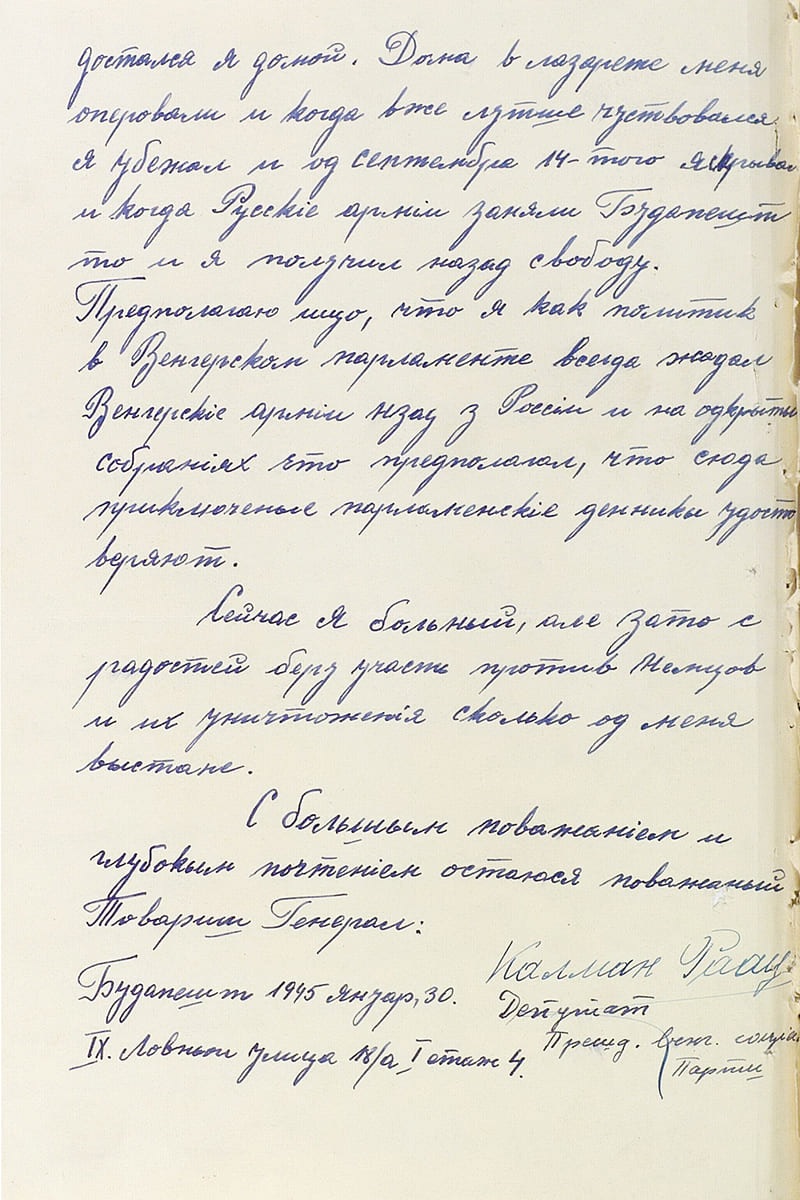 достался я домой. Дома в лазарете меня
оперовали и когда вже лутше чуствовался
я убежал и од септембра 14-того я скрывал
и когда Русскіе арміи заняли Будапешт
то и я получил назад свободу.
Предполагаю ищо, что я как политик
в Венгерском парламенте всегда жадал
Венгерскіе арміи нзад з Россіи и на одкрыты
собраніях что предполагал, что сюда
приключеные парламенскіе денники удосто
веряют.
Сейчас я больный, але зато с
радостей беру участь против Немцов
и их уничтоженія сколько од меня
выстане.
С большым поважаніем и
глубокым почтеніем остаюся поважаный
Товариш Генерал:
Калман Раац
Будапешт 1945 Януар, 30.
Депутат
IX. Ловньи улица 18/а I етаж 4.
Презид. венг. соціа
Партии